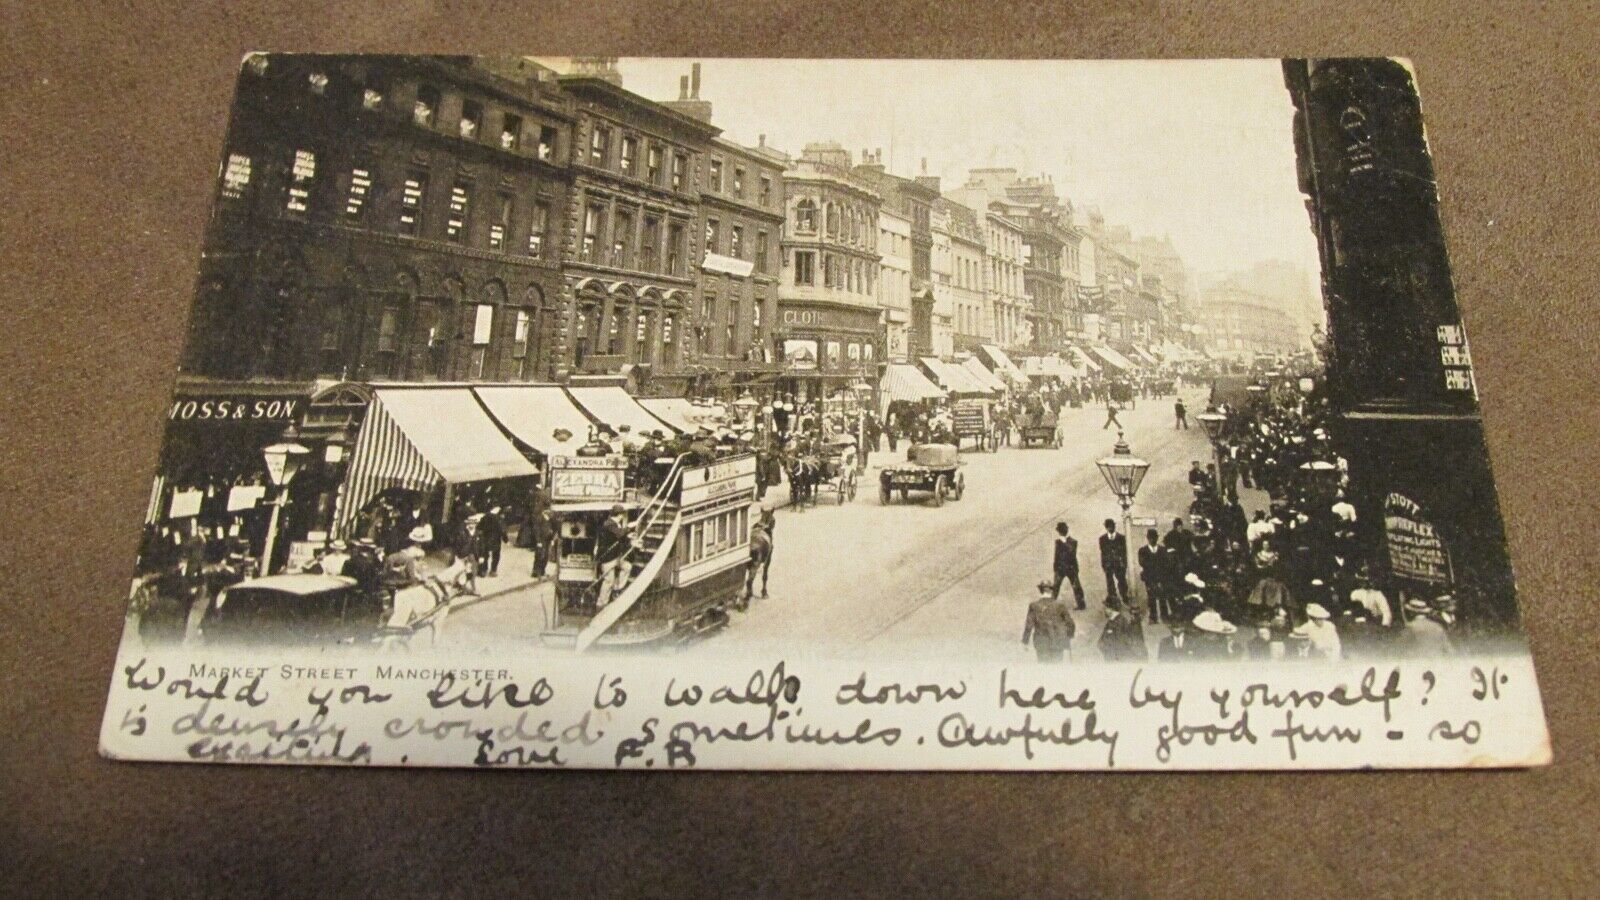 MOSS & SON
CLOTH
ALEXANDRA PARK
ZEBRA
STOTT
MARKET STREET MANCHESTER.
Would you like to walk down here by yourself? It
is densely crowded sometimes. Awfully good fun - so
exciting. Love F.B